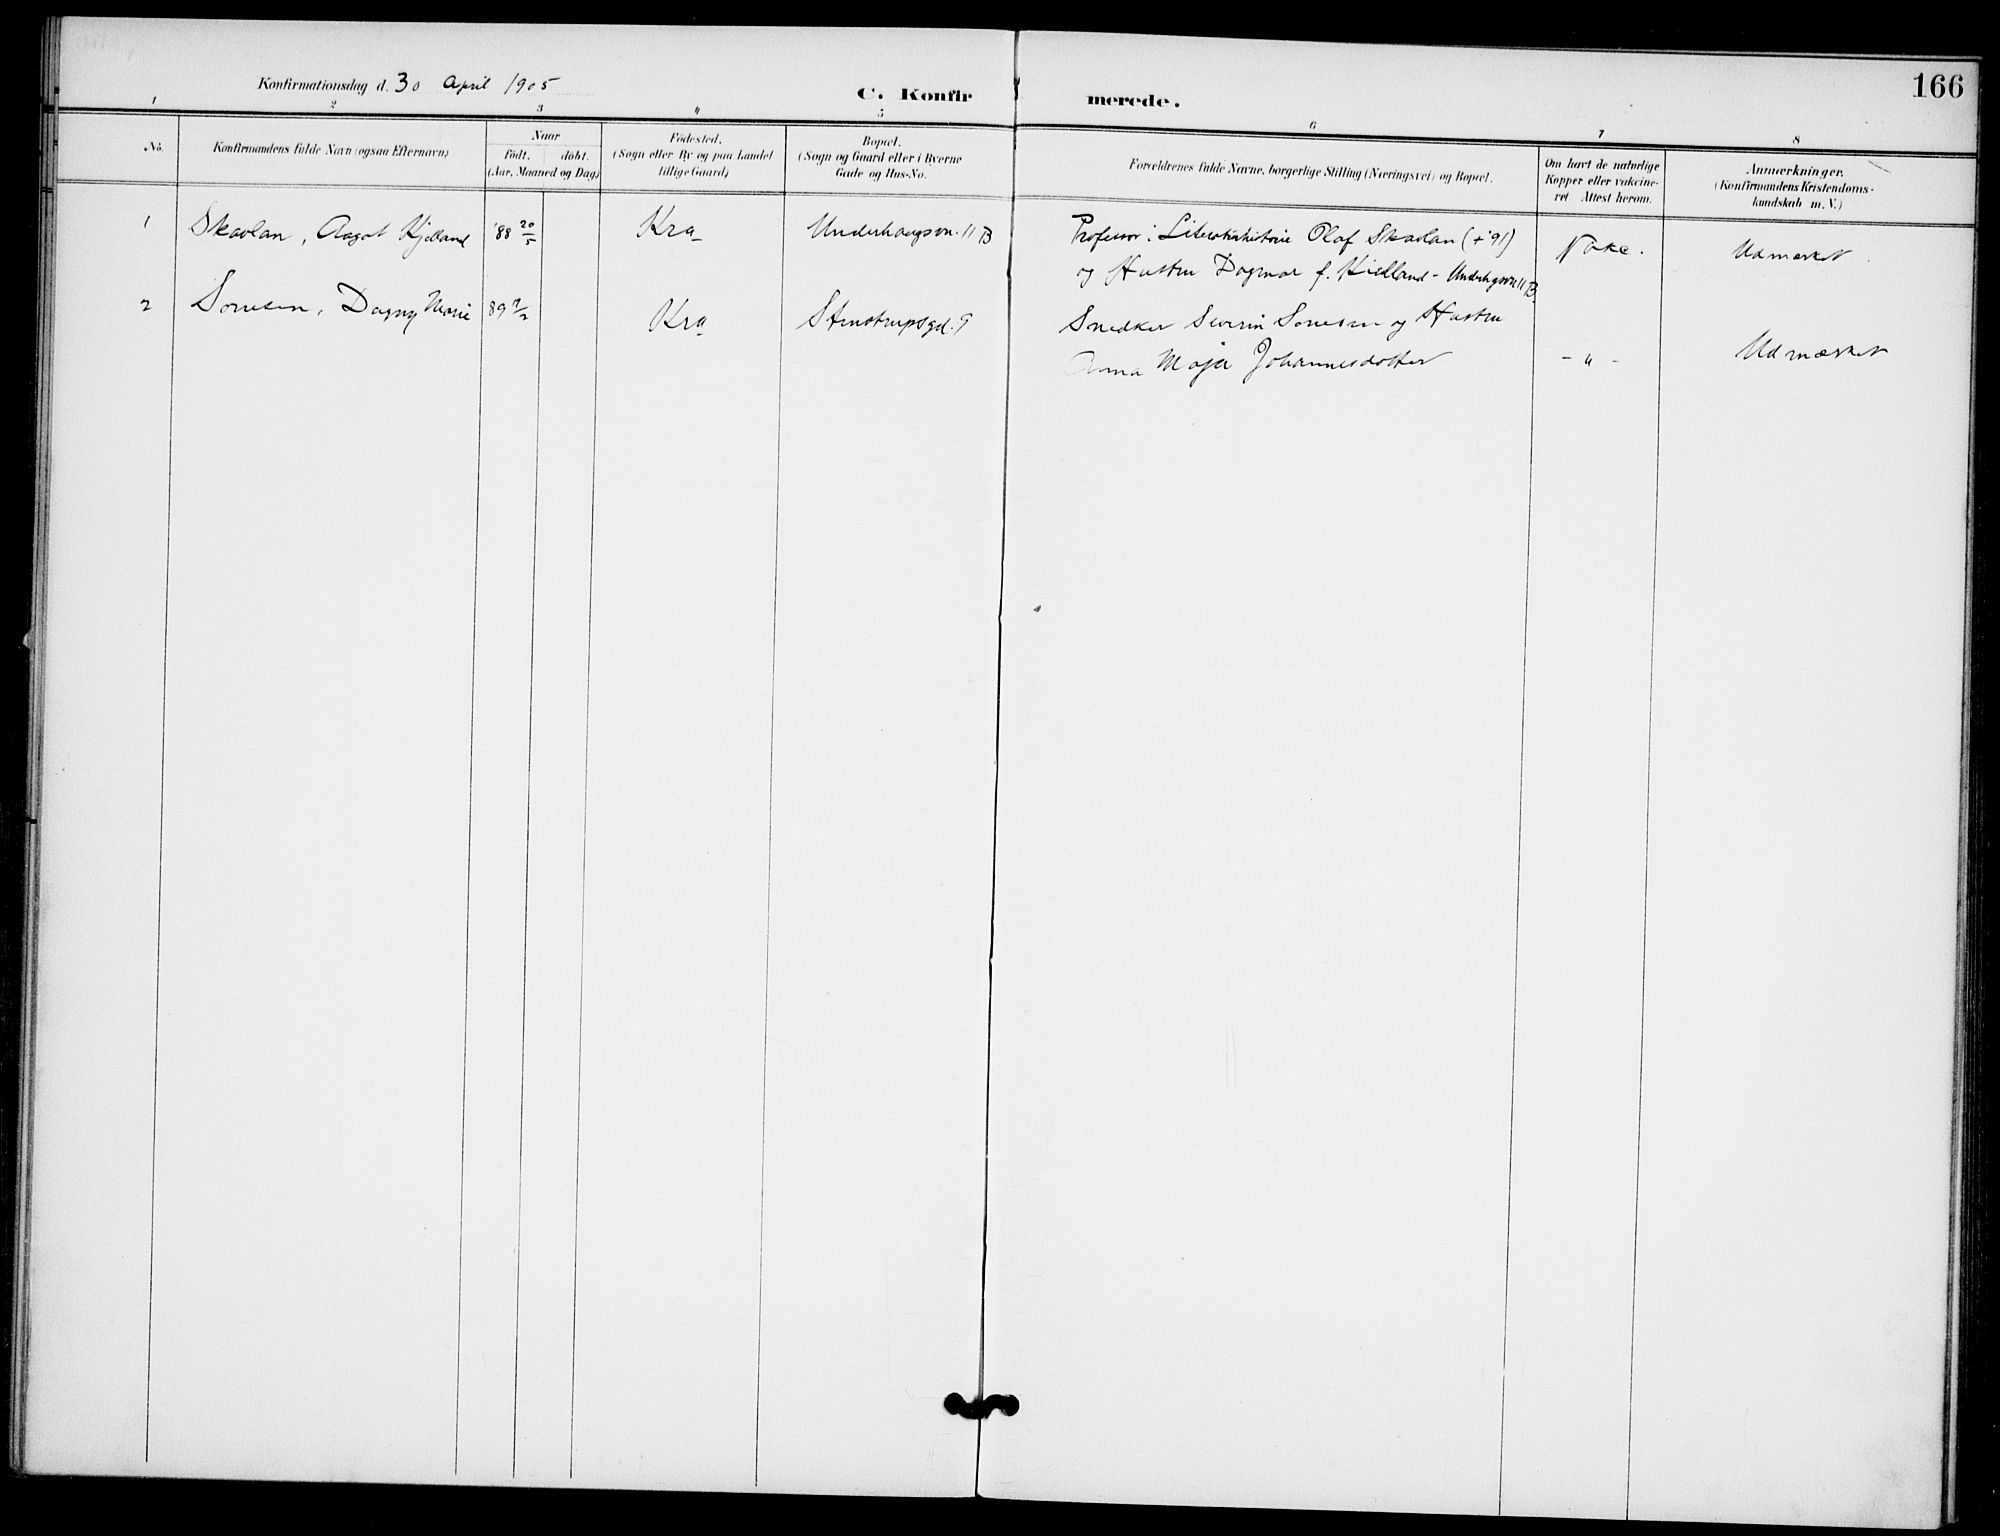 166
Konfirmationsdag d. 30 April 1905
C. Konfirmerede.
1 2 3 4 5 6 7 8
No.
Konfirmandens fulde Navn (ogsaa Efternavn)
Naar
födt. döbt.
(Aar, Maaned og Dag)
Födested.
(Sogn eller By og paa Landet
tillige Gaard)
Bopæl.
(Sogn og Gaard eller i Byerne
Gade og Hus-No.
Forældrenes fulde Navne, borgerlige Stilling (Næringsvei) og Bopæl.
Om havt de naturlige
Kopper eller vakcine-
ret Attest herom.
Anmærkninger.
(Konfirmandens Kristendoms-
kundskab m. V.)
1 Skavlan, Aagot Kjelland '88 20/5 Kra Underhaugsvn. 11 B Professor i Literaturhistorie Olaf Skavlan (+ '91) Vakc. Udmærket
og Hustru Dagmar f. Kielland - Underhgsvn 11 B
2 Sonesen, Dagny Marie 89 2/2 Kra Stenstrupsgd. 9 Snedker Severin Sonesen og Hustru
Anna Maja Johannesdotter - " - Udmærket